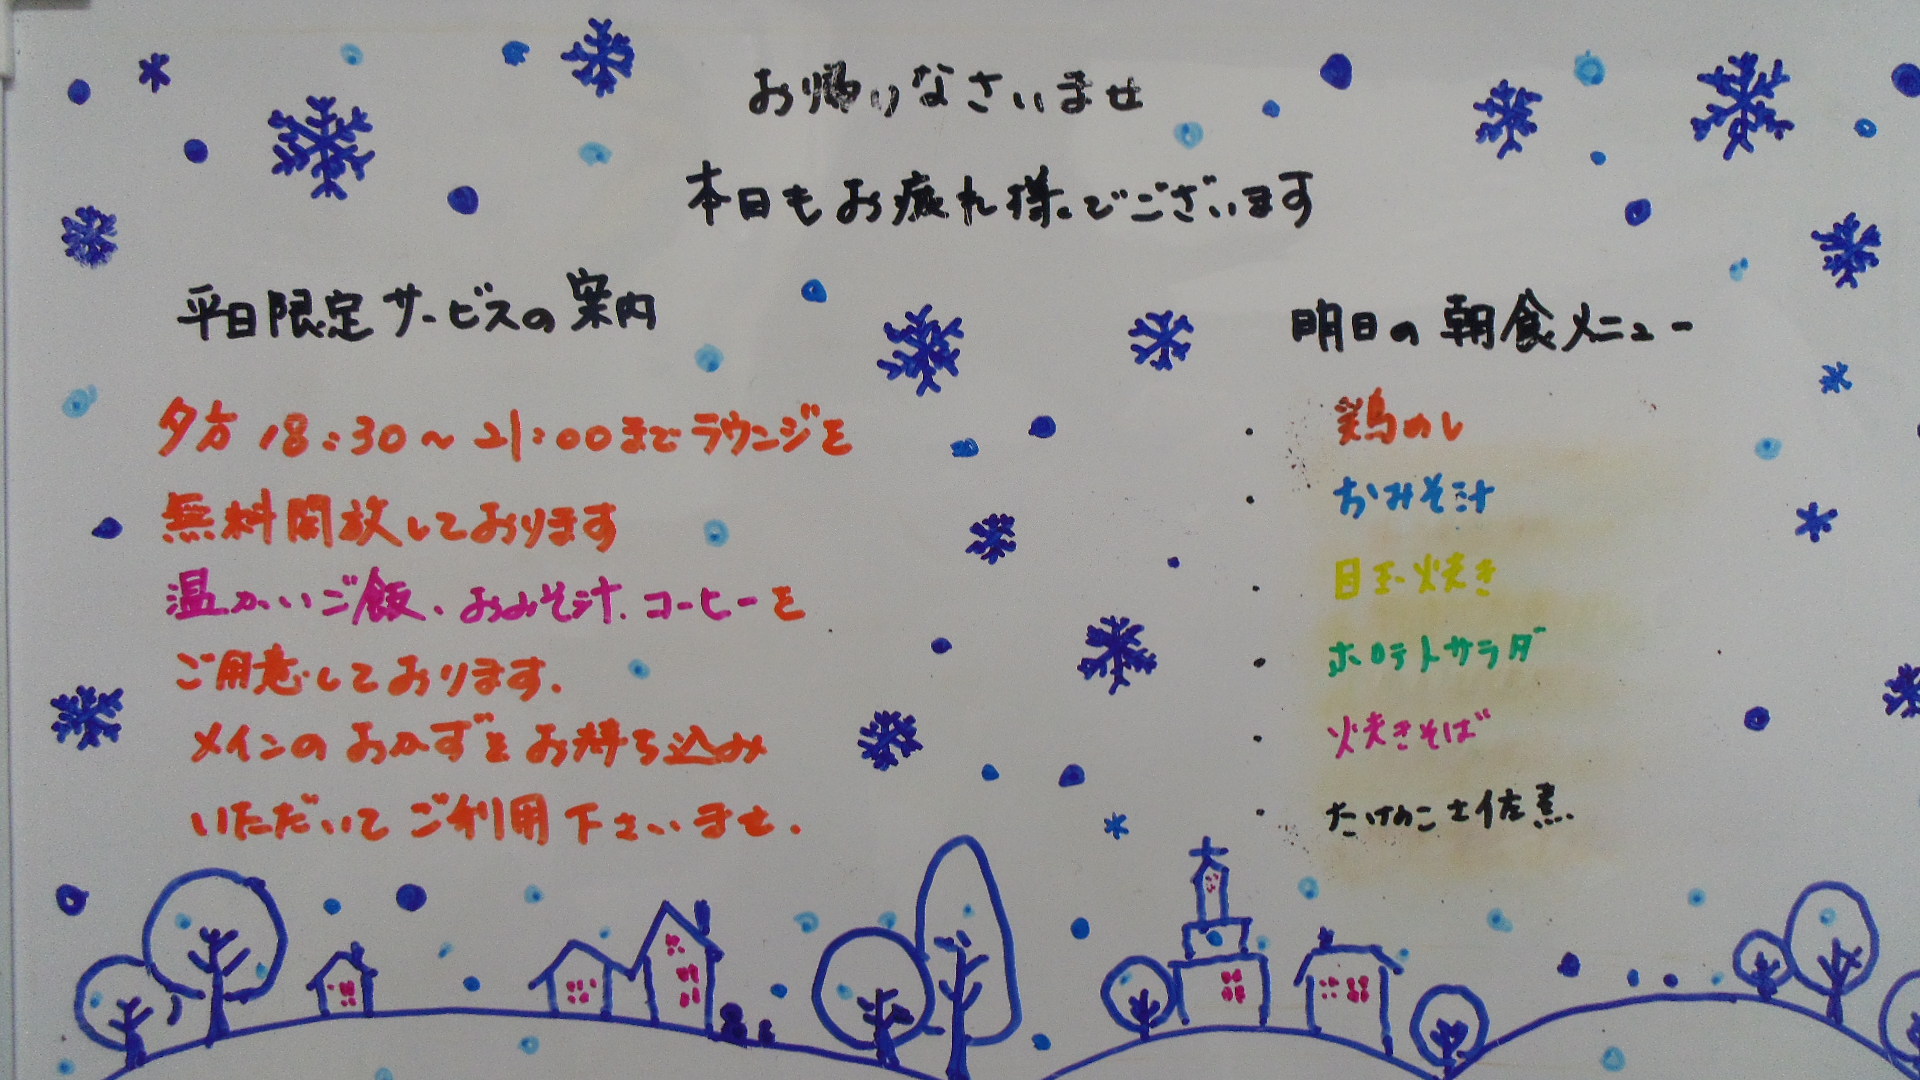 お帰りなさいませ
本日もお疲れ様でございます
平日限定サービスの案内
夕方 18:30～21:00までラウンジを
無料開放しております
温かいご飯、おみそ汁、コーヒーを
ご用意しております.
メインのおかずをお持ち込み
いただいてご利用下さいませ.
明日の朝食メニュー
・ 鶏めし
・ おみそ汁
・ 目玉焼き
・ ポテトサラダ
・ 焼きそば
・ たけのこ土佐煮